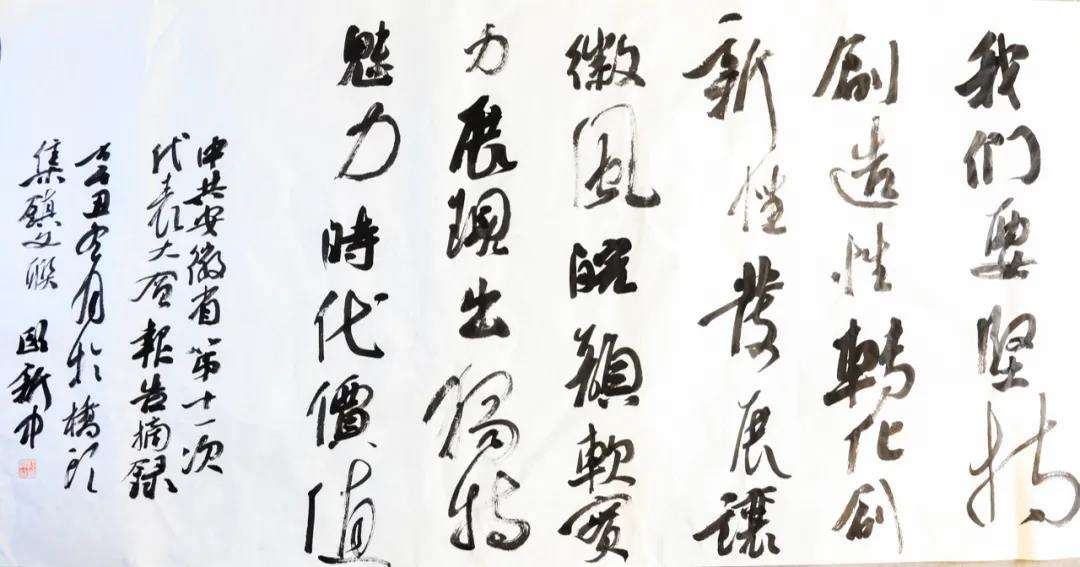 我们要堅持
創造性轉化創
新性發展讓
徽風皖韻軟實
力展現出獨特
魅力時代價值
中共安徽省第十一次
代表大會報告摘錄
辛丑冬月於橋頭
集鎮文聯 國新